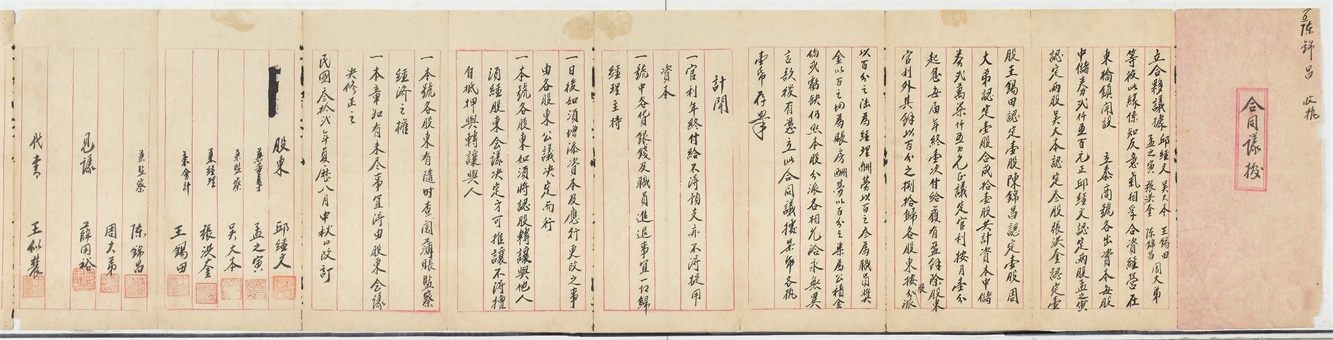 陈錦昌 收执
合同議據
立合夥議據邱經文 吳大本 王錫田
孟之寅 張洪奎 陈錦昌 周大弟
等彼此緣係知友意氣相孚合資經營在
東榆鎮開設 立泰商號各出資本每股
中儲券弍仟五百元正邱經文認定兩股孟之寅
認定兩股吳大本認定叁股張洪奎認定壹
股王錫田認定壹股陳錦昌認定壹股周
大弟認定壹股合成拾壹股共計資本中儲
券弍萬柒仟五百元正議定官利按月壹分
起息每屆年終壹次付給履有盈餘除股東
官利外其餘以百分之捌拾歸各股東按股分派
以百分之法為經理酬勞以百分之叁為職員獎
金以百分之四為賬房酬勞以百分之柒為公積金
倘或虧缺仍照本股分派各相允洽永無異
言欲後有憑立此合同議據柒帋各執
壹帋存畢
計開
一官利年終付給不得預支亦不得提用
資本
一號中各貨銀錢及職員進退事宜均歸
經理主持
一日後如須增添資本及應行更改之事
由各股東公議决定而行
一本號各股東如須將認股轉讓與他人
須經股東会議决定方可推讓不得擅
自抵押與轉讓與人
一本號各股東有隨時查閱薄賬監察
經濟之權
一本章如有未尽事宜得由股東会議
决修正之
民國叁拾弍年夏歷八月中秋日改訂
股東
邱經文
孟之寅
兼監察 吳大本
兼經理 張洪奎
兼会計 王錫田
兼監察 陈錦昌
周大弟
見議 薛国裕
代書 王似農